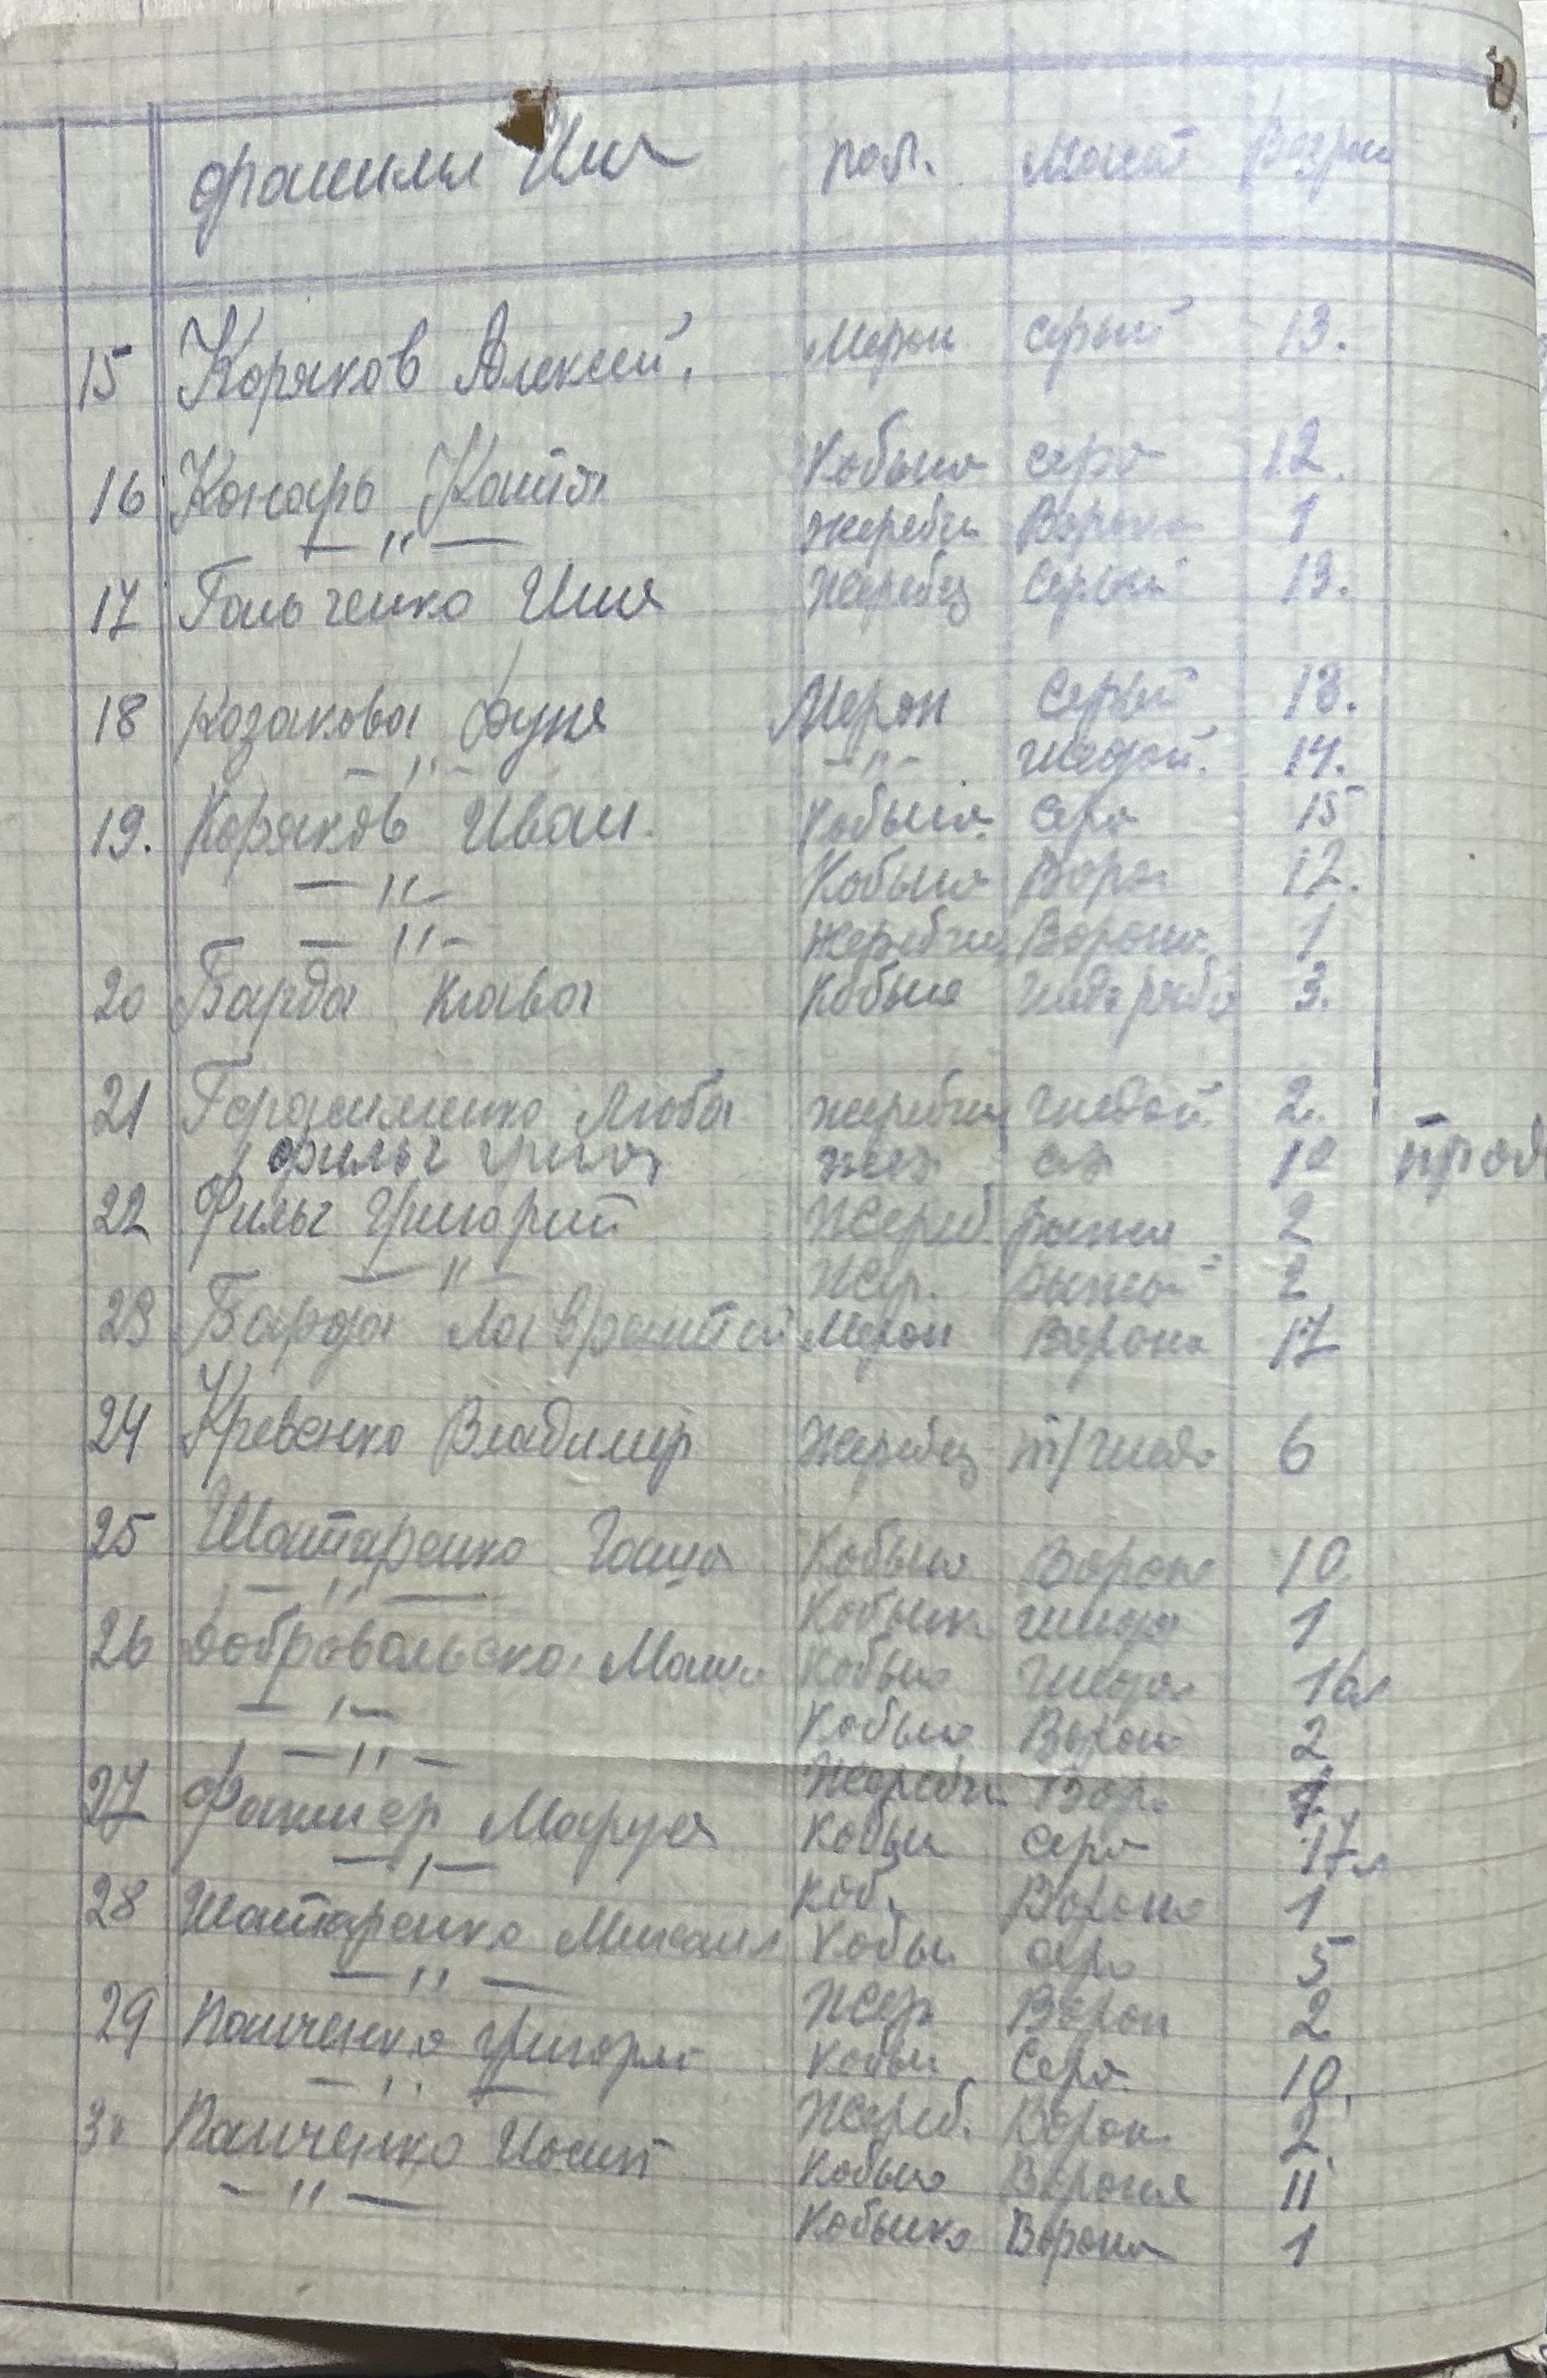 фамилия Имя пол. Масть Возрас
15 Коряков Алексей. Мерин серый 13.
16 Конарь Катя Кобыла сера 12.
— " — жеребчи Ворона 1
17 Гальченко Илья жеребец серый 13.
18 Козакова Дуня Мерен Серый 13.
— " — — " — гнедой. 14.
19. Коряков Иван. Кобыла. Сера 15
— " — Кобыла Вора 12.
— " — жеребчик Ворона. 1
20 Барда Клава Кобыла гнедо рыба 3.
21 Герасименко Люба жеребчик гнедой. 2.
Фильч Григо жер 10 прод
22 Фильч Григорий Жереб. рыжая 2
— " — Жер. рыжой 2
23 Барда Лаврентий Мерен Ворона 17
24 Кревенко Владимер жеребец т/гнедо 6
25 Шатаренко Гаша Кобыла Ворона 10.
— " — Кобылка гнеда 1
26 Добровольска Маша Кобыла гнедая 16л
— " — Кобыла Ворона 2
— " — Жеребчи Вор.
27 Маруся Кобыл сера 17л
— " — Коб. Ворона 1
28 Шатаренко Михаил Кобы. сера 5
— " — Жер Ворон 2
29 Панченко Григорий Кобыл Сера. 10.
— " — Жереб. Ворон. 2.
30 Панченко Иосип Кобыла Вороная 11
— " — Кобылка Ворона 1